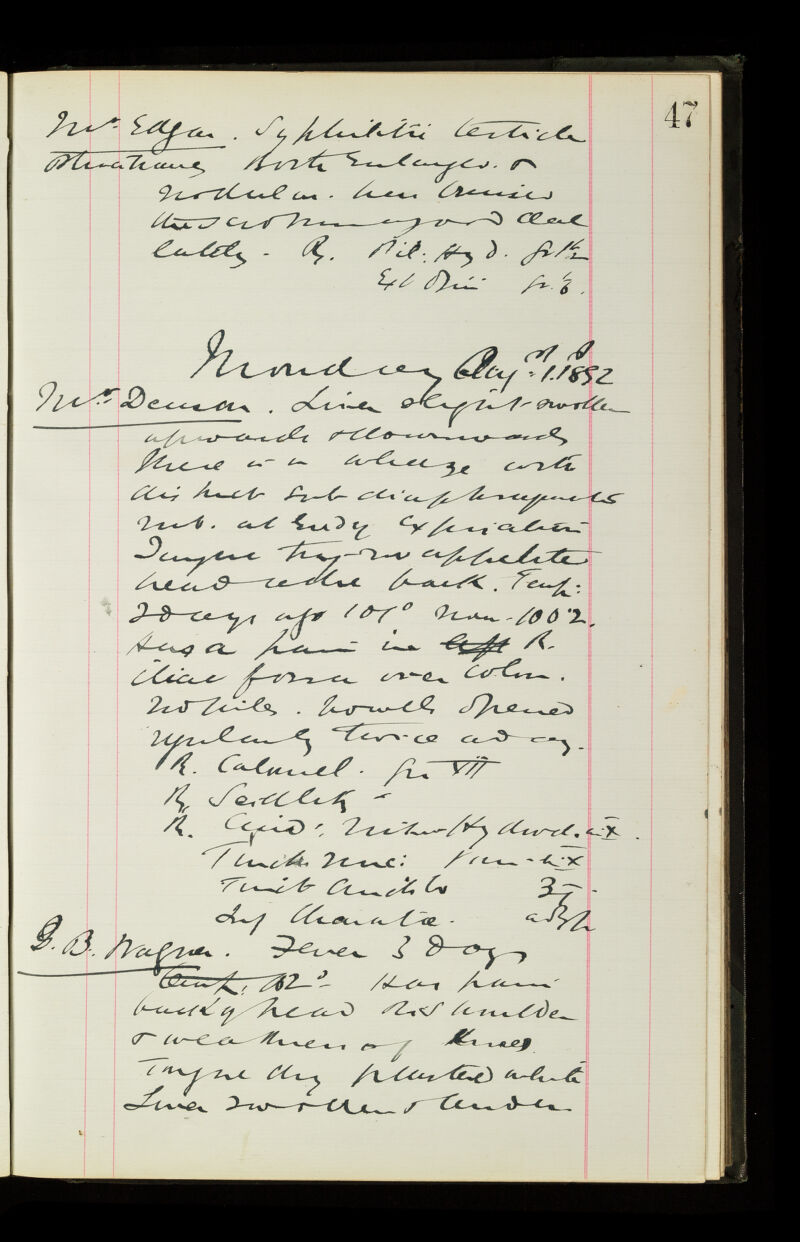 47
Mr. Edgar. Syphilitic testicle
Both Enlarged. &
nodular. has bruised
the scrotum a good deal
lately - R. Pil: Hyd. gr 1½
Ext Opii gr. ⅙.
Monday Aug: 1st. 1892
Mr. Denison. Liver slight swollen
upwards & downwards
There is a wheeze with
distinct sub diaphragmatic
rub. at End of Expiration
Tongue no appetite
head ache back. Temp:
2 days ago 101° now - 100.2.
Has a pain in left R.
iliac fossa over colon.
No piles. bowels opened
regularly twice a day.
R. Calomel. gr VII
R. Seidlitz
R. Acid: Nitro Hydrod. m x.
Tinct: nuc: Vom - m x
Tinct
Inf Chiratae. ad ℥ss
G. B. Wagner. Fever 3 Days
Temp: 102° - Has pain
back of head R shoulder
& weakness of knees
Tongue dry plastered white
Liver swollen & tender